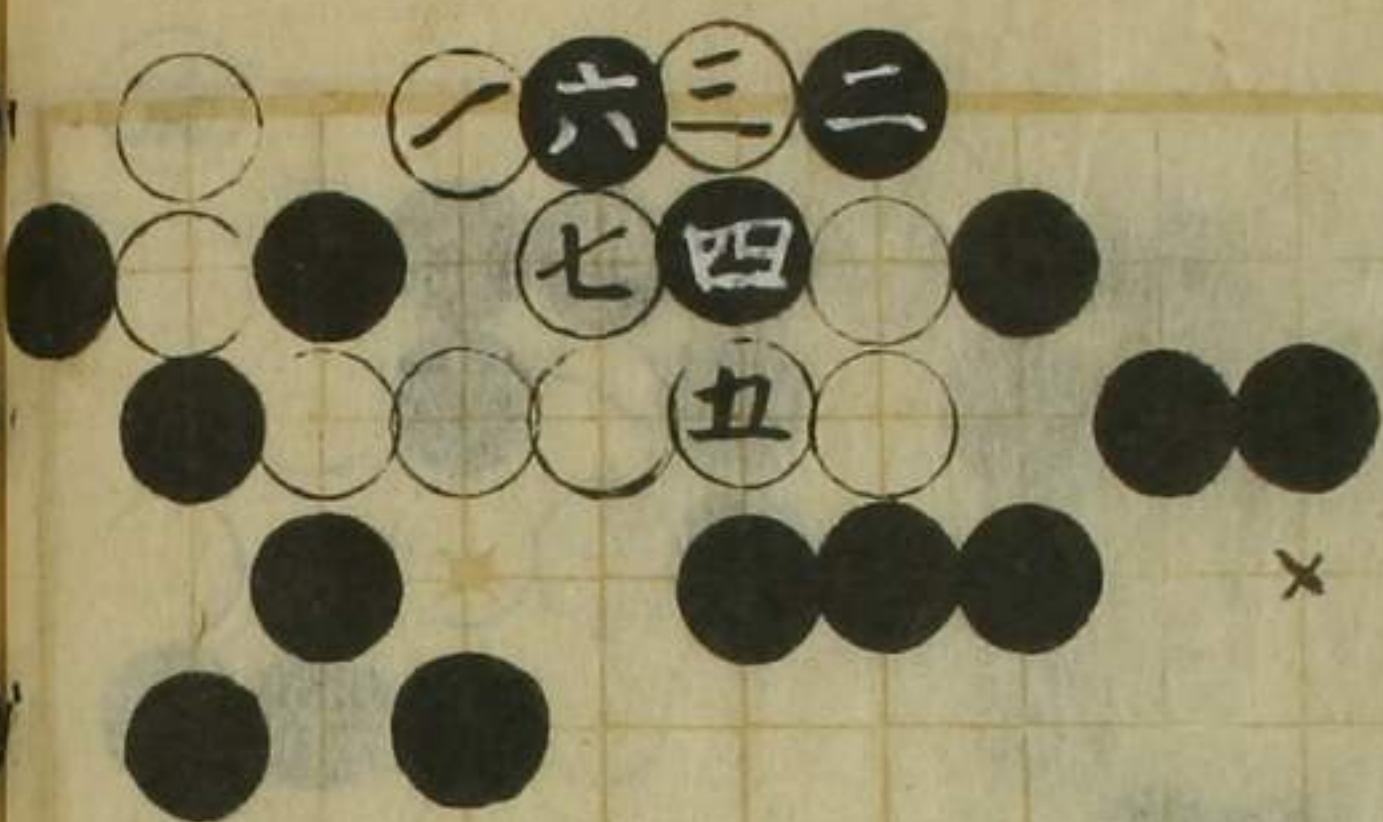 一六三二
七四
五